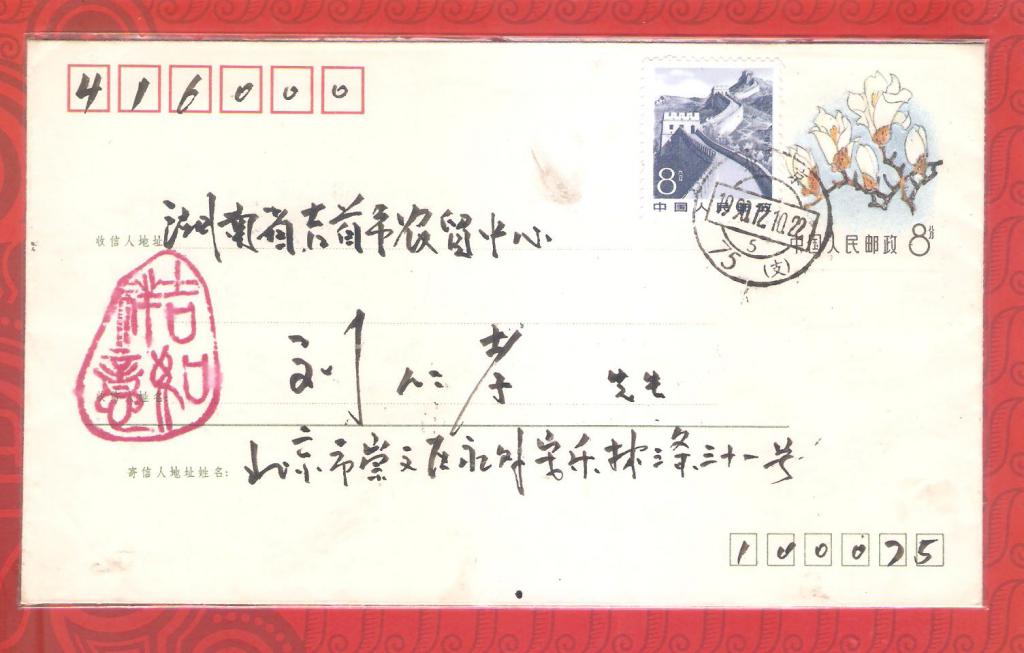 416000
8分
中国人民邮政
1990.12.10.22
5
75(支)
中国人民邮政 8分
湖南省吉首市农贸中心
收信人地址
吉祥如意
刘仁孝 先生
收信人姓名:
北京市崇文区永外安乐林三条三十一号
寄信人地址姓名:
100075